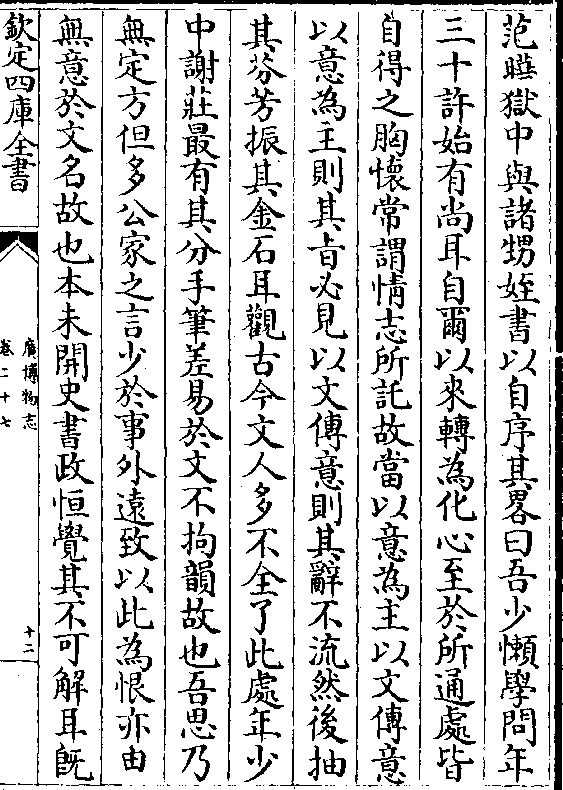 范曄獄中與諸甥姪書以自序其畧曰吾少懶學問年
三十許始有尚耳自爾以來轉為化心至於所通處皆
自得之胸懷常謂情志所託故當以意為主以文傳意
以意為主則其旨必見以文傳意則其辭不流然後抽
其芬芳振其金石耳觀古今文人多不全了此處年少
中謝莊最有其分手筆差易於文不拘韻故也吾思乃
無定方但多公家之言少於事外遠致以此為恨亦由
無意於文名故也本未開史書政恒覺其不可解耳既
欽定四庫全書
廣博物志
卷二十七
十二